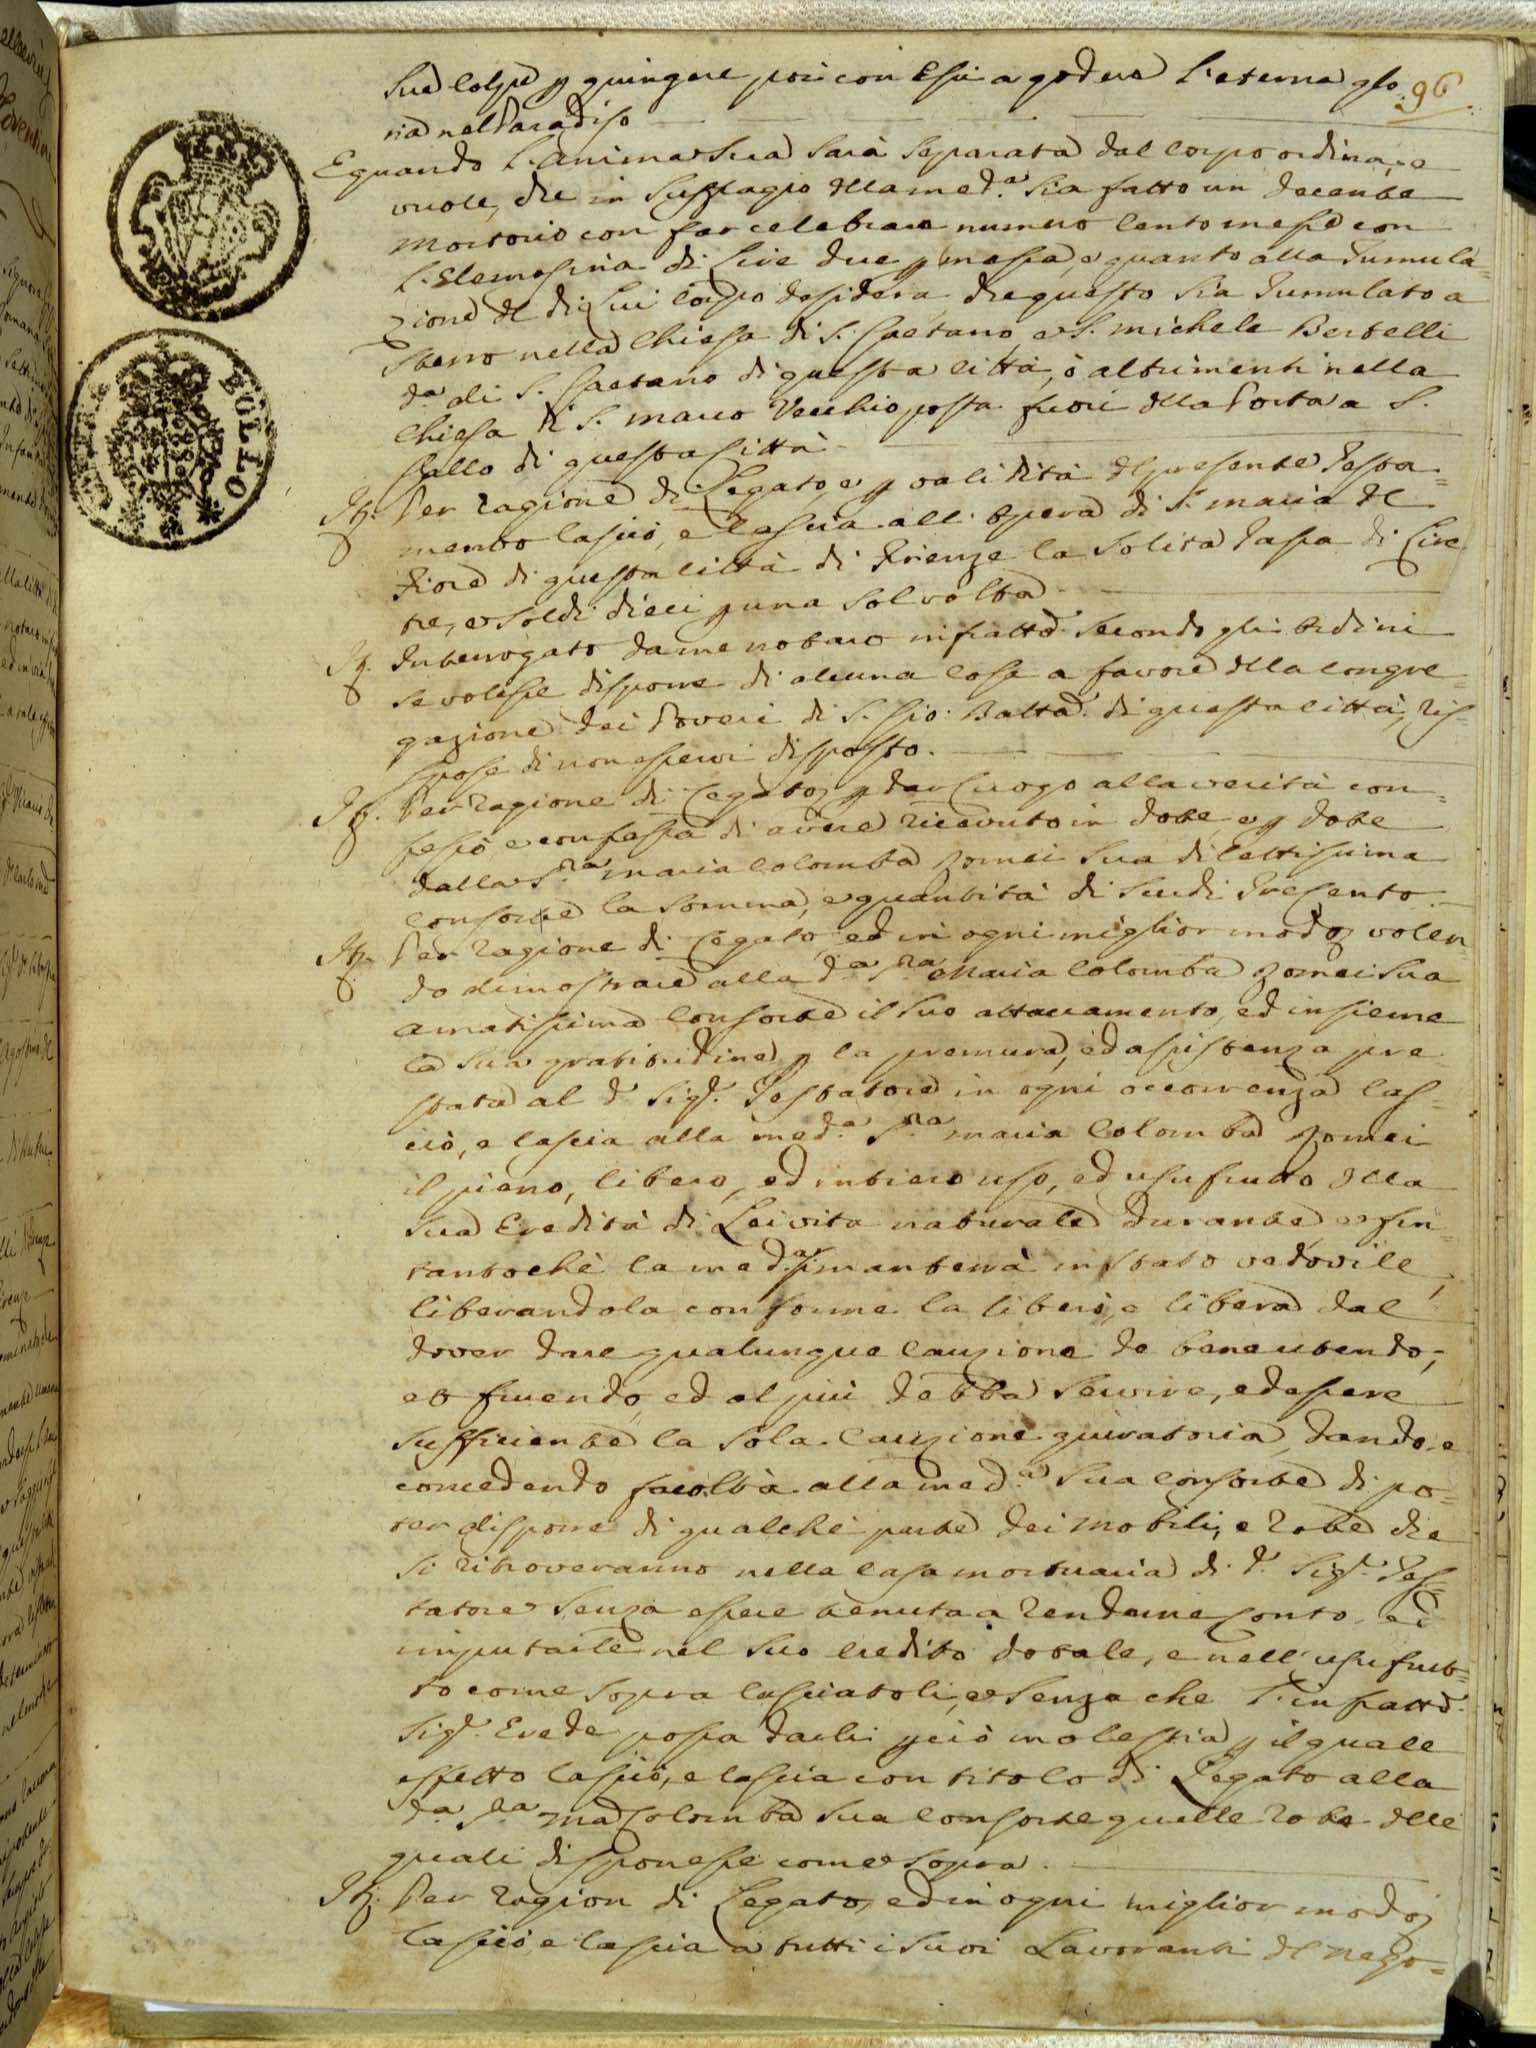 sue colpe p giungere poi con Essi a godere l'eterna glo 96
ria nel Paradiso
E quando l'anima sua sarà separata dal corpo ordina, e
vuole, che in suffragio della med.ª sia fatto un decente
mortorio con far celebrare numero cento messe con
l'Elemosina di Lire due p messa, e quanto alla tumula=
zione del di Lui corpo desidera che questo sia tumulato a
sterro nella Chiesa di S. Gaetano, e S. Michele Bertelli
d.ª di S. Gaetano di questa Città, ò altrimenti nella
Chiesa di S. Marco Vecchio posta fuori della Porta a S.
Gallo di questa Città
It. Per ragione di Legato, e p validità del presente Testa=
mento lasciò, e lascia all'Opera di S. Maria del
Fiore di questa Città di Firenze la solita tassa di Lire
tre, e soldi dieci p una sol volta
It. Interrogato da me notaro infratto secondo gli ordini
se volesse disporre di alcuna cosa a favore della Congre=
gazione dei Poveri di S. Gio: Batta di questa Città, ris=
spose di non esservi disposto.
It. Per ragione di Legato, p dar luogo alla verità con=
fessò e confessa di avere ricevuto in dote, e p dote
dalla S.ra Maria Colomba Zomei sua dilettissima
consorte la somma, e quantità di scudi Trecento.
It. Per ragione di Legato, ed in ogni miglior modo, volen
do dimostrare alla d.ª S.ra Maria Colomba Zomei sua
amatissima Consorte il suo attaccamento, ed insieme
la sua gratitudine p la premura, ed assistenza pre
stata al d.º Sig.r Testatore in ogni occorrenza las=
ciò, e lascia alla med.ª S.ra Maria Colomba Zomei
il pieno, libero, ed intiero uso, ed usufrutto della
sua Eredità di Lei vita naturale durante, e fin=
tantochè la med.ª si manterrà in stato vedovile,
liberandola conforme la liberò, e libera dal
dover dare qualunque cauzione de bene utendo,
et fruendo, ed al più debba servire, ed essere
sufficiente la sola cauzione giuratoria, dando, e
concedendo facoltà alla med.ª sua Consorte di po=
ter disporre di qualche parte dei mobili, e robe che
si ritroveranno nella casa mortuaria di d.º Sig.r Tes=
tatore senza essere tenuta a renderne conto, ed
imputarle nel suo credito dotale, e nell'usufrut=
to come sopra lasciatoli, e senza che l'infratto
Sig.r Erede possa darli p ciò molestia p il quale
effetto lasciò, e lascia con titolo di Legato alla
d.ª S.ra Ma Colomba sua consorte quelle robe delle
quali disponesse come sopra.
It. Per ragion di Legato, ed in ogni miglior modo,
lasciò e lascia a tutti i suoi Lavoranti del nego=
BOLLO